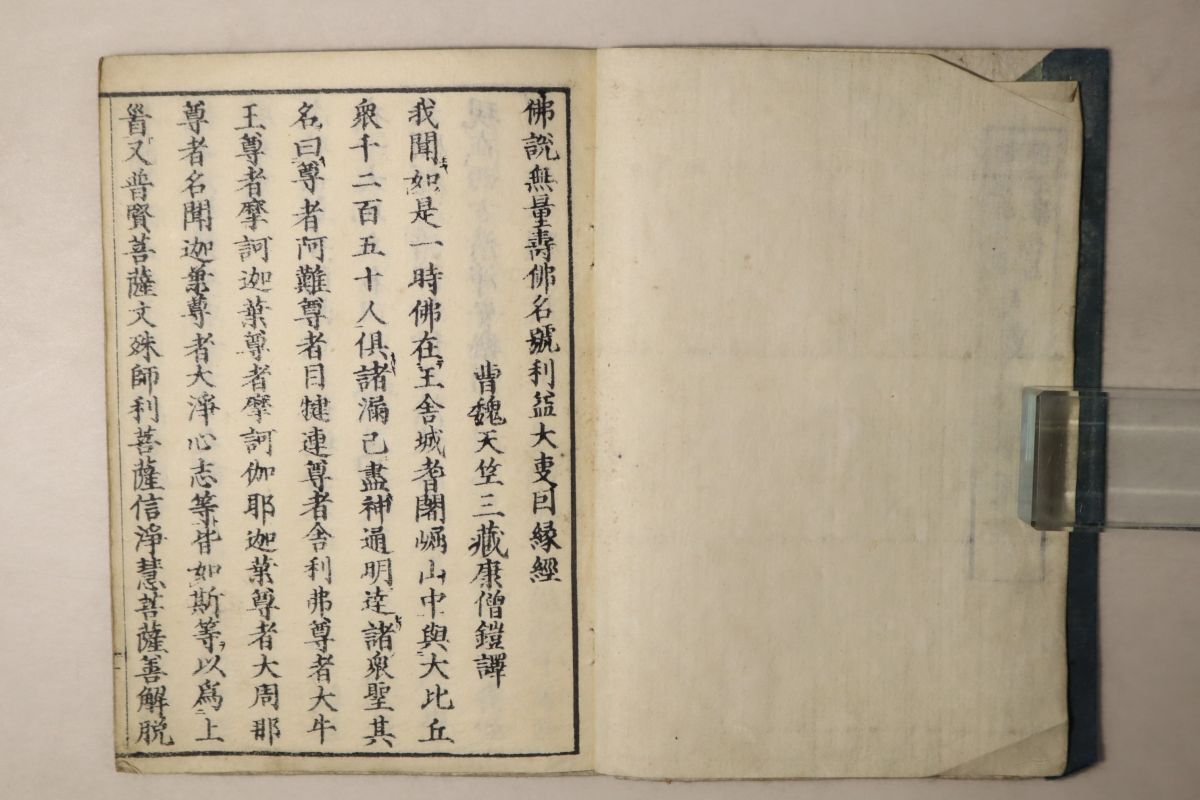 佛說無量壽佛名號利益大叓因緣經
曹魏天竺三藏康僧鎧譯
我聞如是一時佛在王舍城耆闍崛山中與大比丘
衆千二百五十人俱諸漏已盡神通明達諸衆聖其
名曰尊者阿難尊者目犍連尊者舍利弗尊者大牛
王尊者摩訶迦葉尊者摩訶伽耶迦葉尊者大周那
尊者名聞迦葉尊者大淨心志等皆如斯等以爲上
首又普賢菩薩文殊師利菩薩信淨慧菩薩善解脫